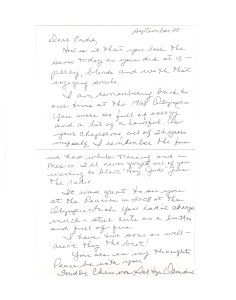 September 25
Dear Endie,
How is it that you look the
same today as you did at 15 -
perky, blonde and with that
engaging smile.
I am remembering back to
our time at the 1968 Olympics
You were so full of energy
and a bit of a handful. As
your chaperone, all of 24 years
myself, I remember the fun
we had while training and in
Mexico. I'll never forget all of you
wanting to blast "Hey Jude" from
the radio.
It was great to see you
at the Reunion in 2008 at the
Olympic Trials. You hadn't changed
much - still cute as a button
and full of fun.
I have two sons as well -
aren't they the best!
You are in my thoughts.
Peace be with you,
Fondly, Chris von Saltza Olmstead